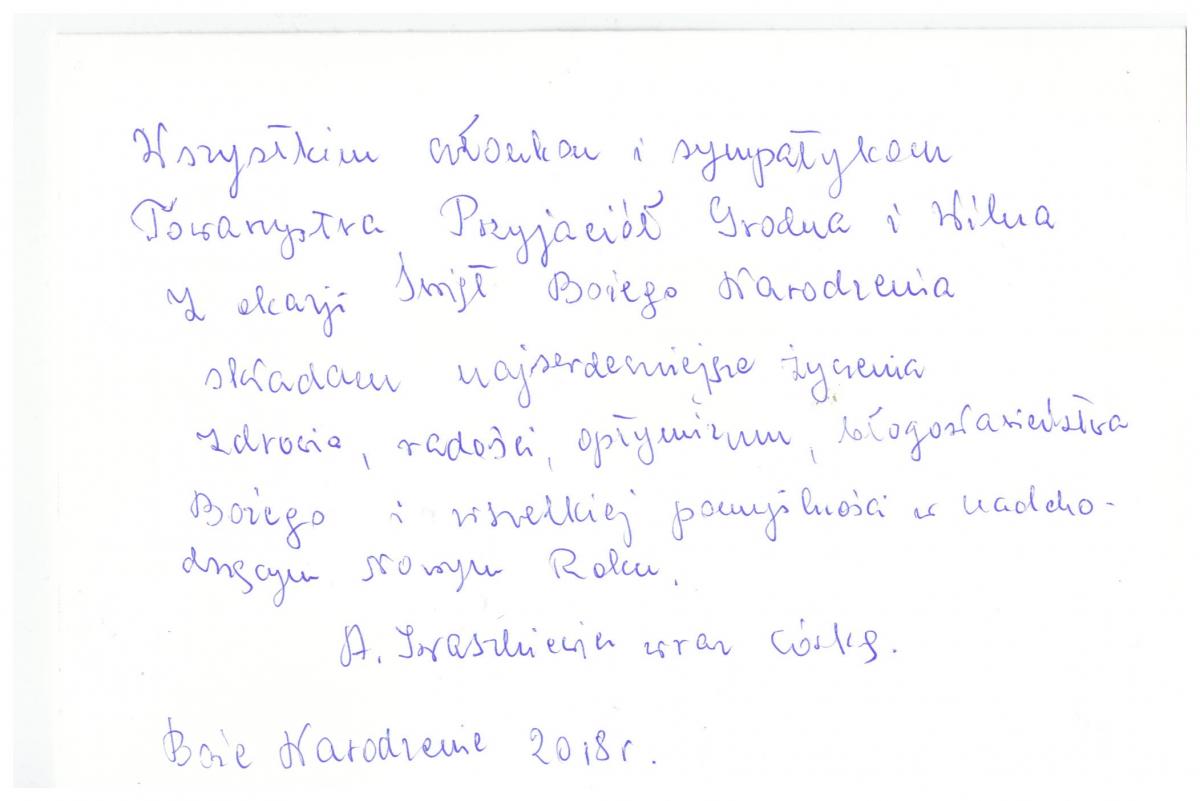 Wszystkim członkom i sympatykom
Towarzystwa Przyjaciół Grodna i Wilna
Z okazji Świąt Bożego Narodzenia
składam najserdeczniejsze życzenia
zdrowia, radości, optymizmu, błogosławieństwa
Bożego i wszelkiej pomyślności w nadcho-
dzącym Nowym Roku.
A. Iwaszkiewicz wraz córką.
Boże Narodzenie 2018 r.